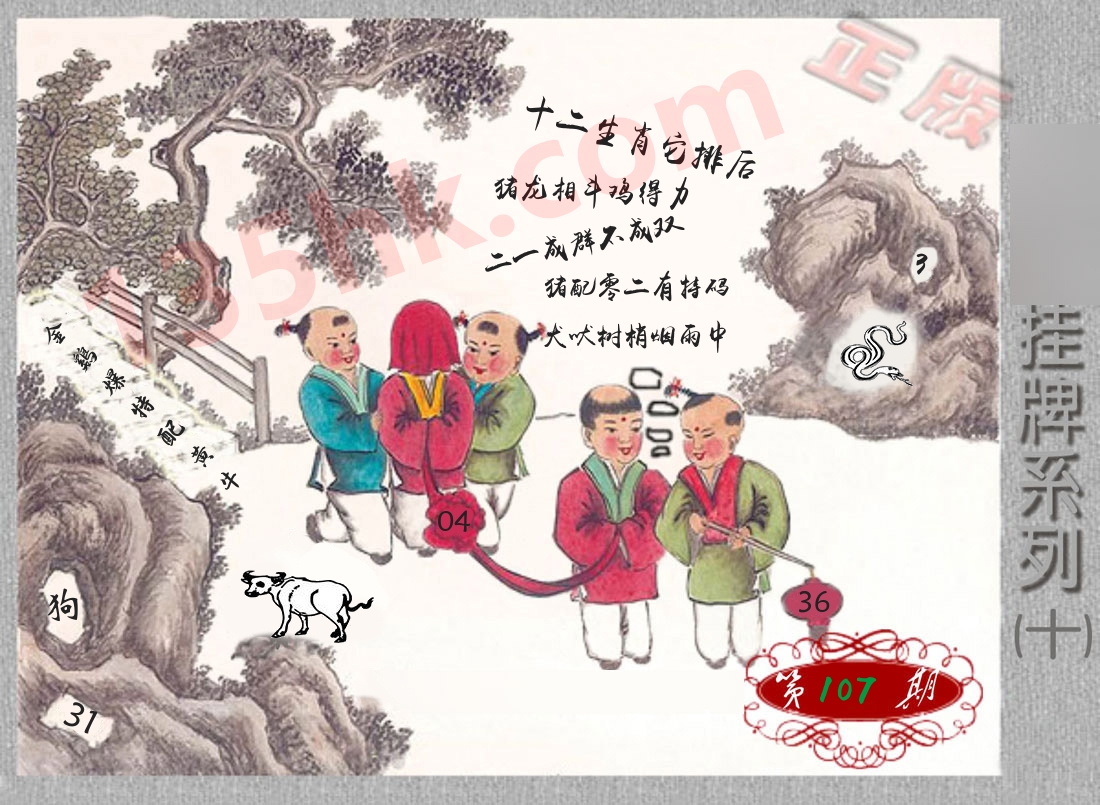 正版
十二生肖它排后
猪龙相斗鸡得力
二一成群不成双
猪配零二有特码
犬吠树梢烟雨中
3
金鷄爆特配黄牛
04
狗
36
31
第107期
挂牌系列(十)